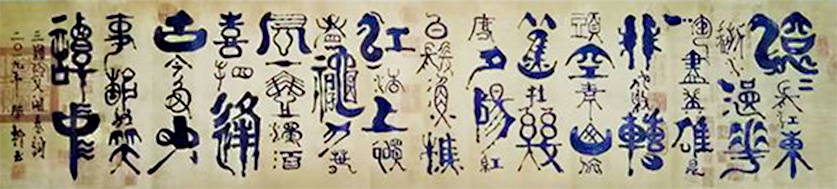 滚〻長江東
逝水浪花
淘盡英雄是
非成敗轉
頭空青山依
舊在幾
度夕陽紅
白髮漁樵
江渚上慣
看龝月春
風一壺濁酒
喜相逢
古今多少
事都付笑
談中
三國演义開卷詞
二〇九年 書